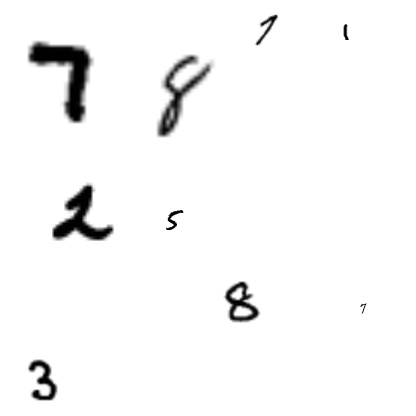 7 8 7 1
2 5
8 7
3